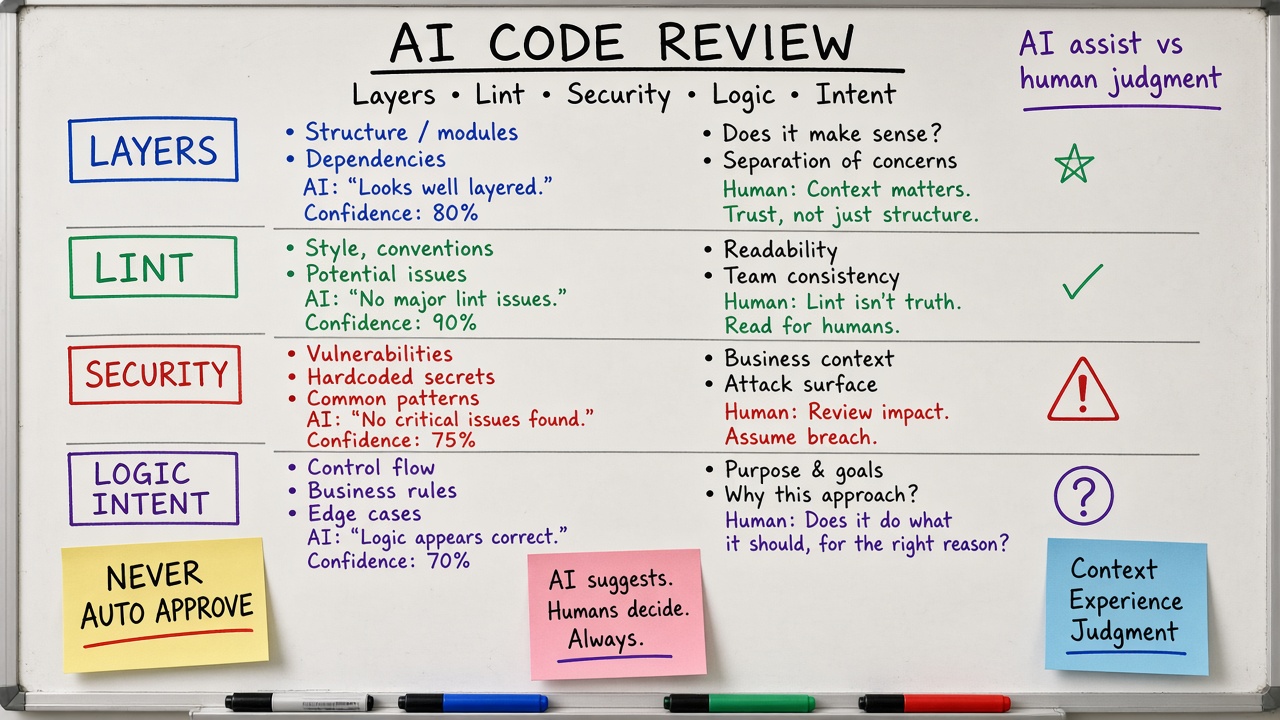 AI CODE REVIEW
Layers • Lint • Security • Logic • Intent
AI assist vs
human judgment
LAYERS
• Structure / modules
• Dependencies
AI: “Looks well layered.”
Confidence: 80%
• Does it make sense?
• Separation of concerns
Human: Context matters.
Trust, not just structure.
LINT
• Style, conventions
• Potential issues
AI: “No major lint issues.”
Confidence: 90%
• Readability
• Team consistency
Human: Lint isn't truth.
Read for humans.
SECURITY
• Vulnerabilities
• Hardcoded secrets
• Common patterns
AI: “No critical issues found.”
Confidence: 75%
• Business context
• Attack surface
Human: Review impact.
Assume breach.
LOGIC
INTENT
• Control flow
• Business rules
• Edge cases
AI: “Logic appears correct.”
Confidence: 70%
• Purpose & goals
• Why this approach?
Human: Does it do what
it should, for the right reason?
?
NEVER
AUTO APPROVE
AI suggests.
Humans decide.
Always.
Context
Experience
Judgment